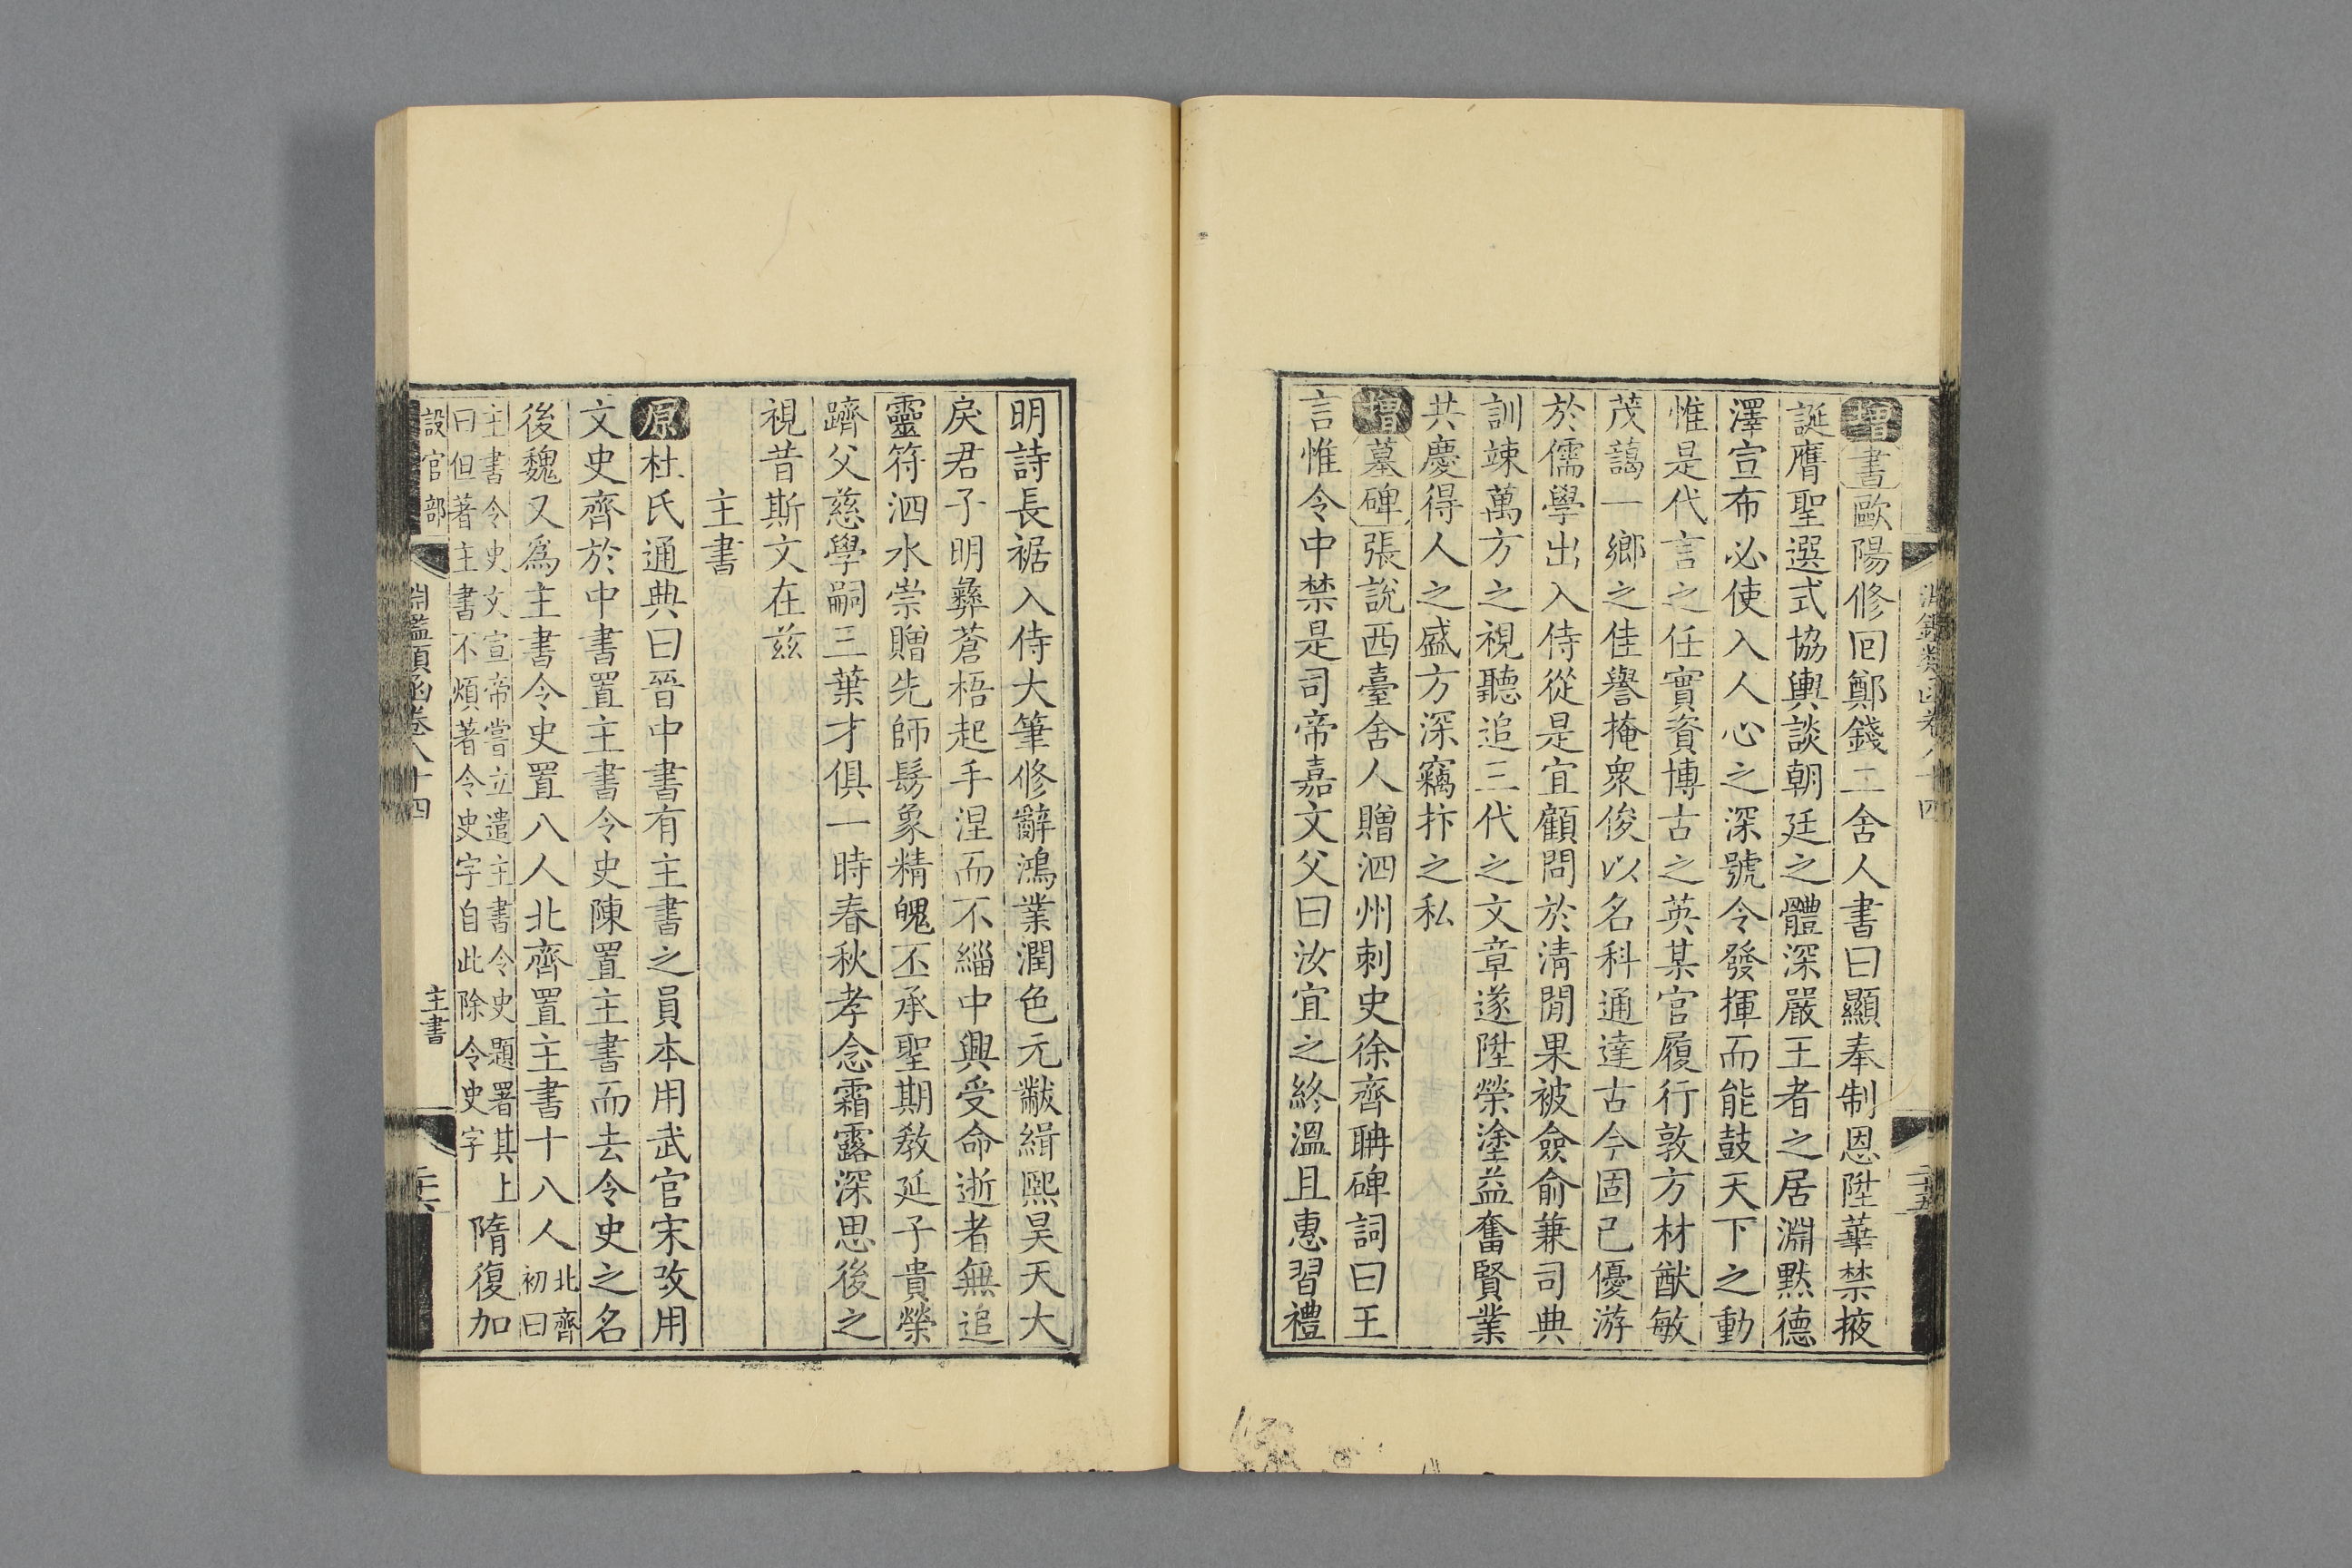 增書歐陽修回鄭錢二舍人書曰顯奉制恩陞華禁掖
誕膺聖選式協輿談朝廷之體深嚴王者之居淵默德
澤宣布必使入人心之深號令發揮而能鼓天下之動
惟是代言之任實資博古之英某官履行敦方材猷敏
茂藹一鄉之佳譽掩衆俊以名科通達古今固已優游
於儒學出入侍從是宜顧問於清閒果被僉俞兼司典
訓竦萬方之視聽追三代之文章遂陞榮塗益奮賢業
共慶得人之盛方深竊抃之私
增墓碑張說西臺舍人贈泗州刺史徐齊聃碑詞曰王
言惟令中禁是司帝嘉文父曰汝宜之終溫且惠習禮
明詩長裾入侍大筆修辭鴻業潤色元黻緝熙昊天大
戾君子明彝蒼梧起手涅而不緇中興受命逝者無追
靈符泗水崇贈先師髣象精魄丕承聖期教延子貴榮
躋父慈學嗣三葉才俱一時春秋孝念霜露深思後之
視昔斯文在兹
主書
原杜氏通典曰晉中書有主書之員本用武官宋改用
文史齊於中書置主書令史陳置主書而去令史之名
後魏又爲主書令史置八人北齊置主書十八人北齊初曰
主書令史文宣帝嘗立遣主書令史題署其上
曰但著主書不煩著令史字自此除令史字
隋復加
設官部
淵鑑類函卷八十四
主書
二十六